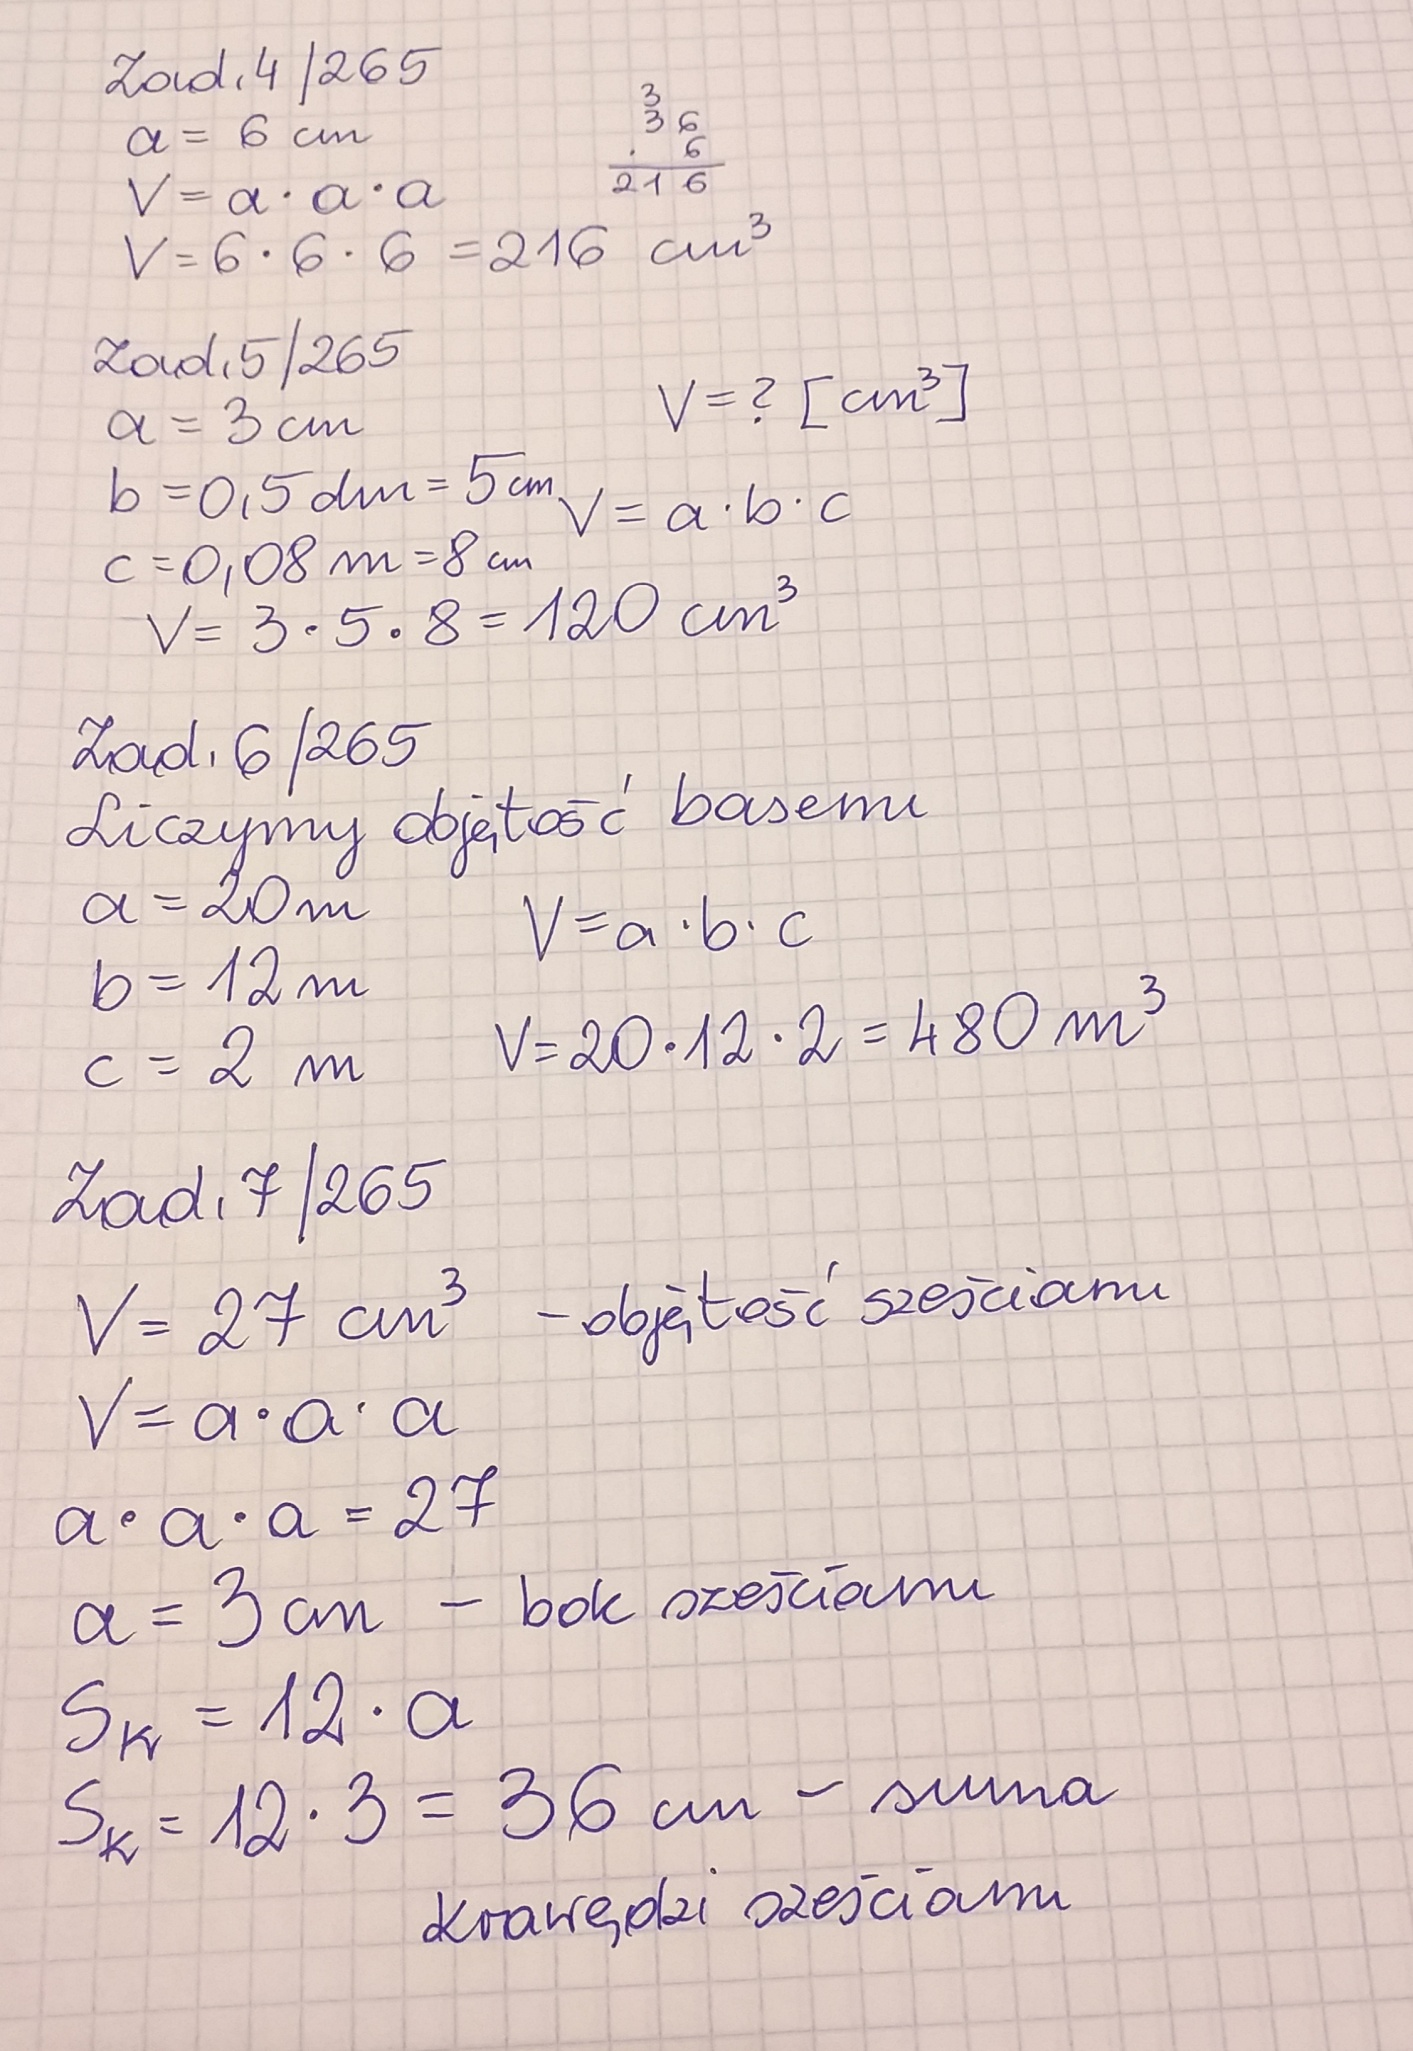 Zad. 4/265
a = 6 cm
V = a · a · a
3
36
· 6
216
V = 6 · 6 · 6 = 216 cm³
Zad. 5/265
a = 3 cm
V = ? [cm³]
b = 0,5 dm = 5 cm
V = a · b · c
c = 0,08 m = 8 cm
V = 3 · 5 · 8 = 120 cm³
Zad. 6/265
Liczymy objętość basenu
a = 20 m
V = a · b · c
b = 12 m
V = 20 · 12 · 2 = 480 m³
c = 2 m
Zad. 7/265
V = 27 cm³ - objętość sześcianu
V = a · a · a
a · a · a = 27
a = 3 cm - bok sześcianu
Sₖ = 12 · a
Sₖ = 12 · 3 = 36 cm - suma
krawędzi sześcianu